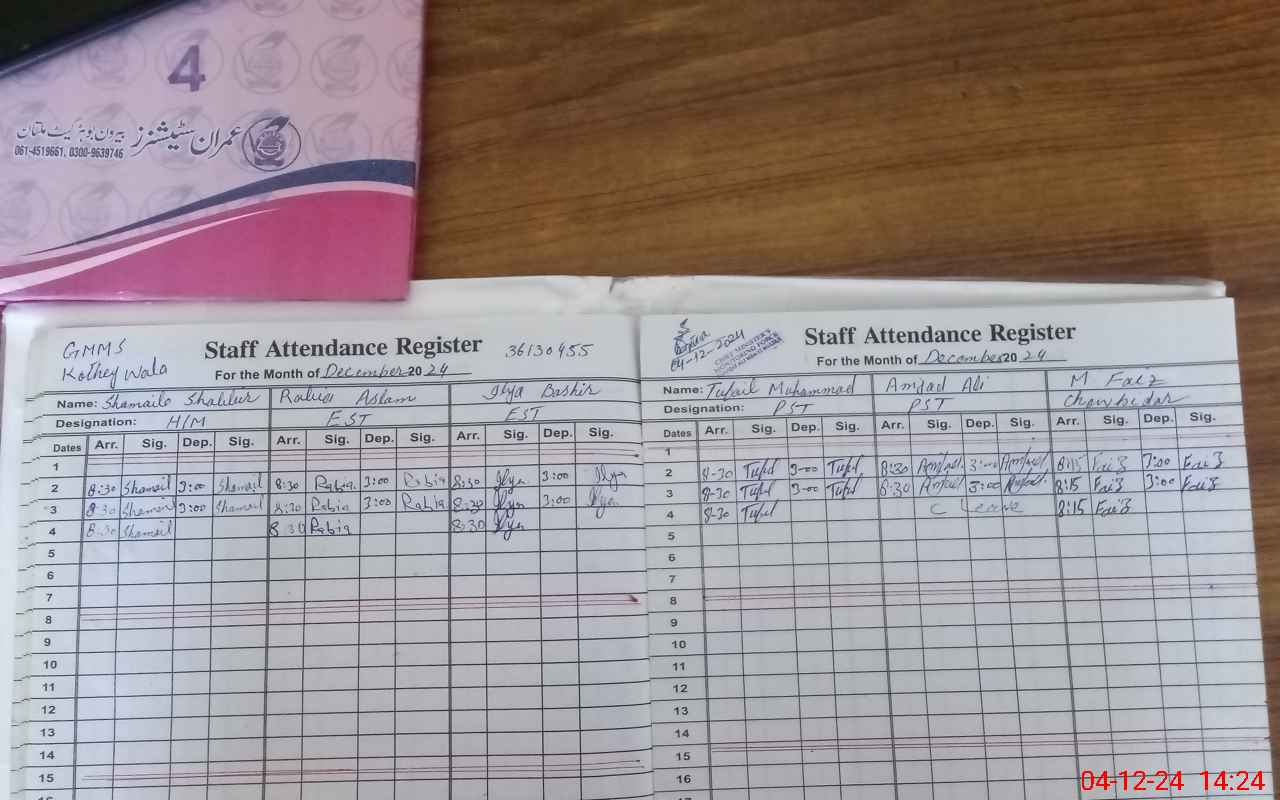 4
عمران سٹیشنرز بیرون بوہڑ گیٹ ملتان
061-4519661, 0300-9639746
GMMS
Kothey wala
Staff Attendance Register
36130455
For the Month of December 2024
Name: Shamaila Rabia Aslam Ilya Bashir
Designation: H/M EST EST
Dates Arr. Sig. Dep. Sig. Arr. Sig. Dep. Sig. Arr. Sig. Dep. Sig.
1
2 8:30 Shamail 3:00 Shamail 8:30 Rabia 3:00 Rabia 8:30 Ilya 3:00 Ilya
3 8:30 Shamail 3:00 Shamail 8:30 Rabia 3:00 Rabia 8:30 Ilya 3:00 Ilya
4 8:30 Shamail 8:30 Rabia 8:30 Ilya
5
6
7
8
9
10
11
12
13
14
15
04-12-2024
CHIEF MINISTER'S
MONITORING FORCE
Staff Attendance Register
For the Month of December 2024
Name: Tufail Muhammad Amjad Ali M Faiz
Designation: PST PST Chowkidar
Dates Arr. Sig. Dep. Sig. Arr. Sig. Dep. Sig. Arr. Sig. Dep. Sig.
1
2 8-30 Tufl 3-00 Tufl 8:30 Amjad 3:00 Amjad 8:15 Faiz 3:00 Faiz
3 8-30 Tufl 3-00 Tufl 8:30 Amjad 3:00 Amjad 8:15 Faiz 3:00 Faiz
4 8-30 Tufl C Leave 8:15 Faiz
5
6
7
8
9
10
11
12
13
14
15
16
04-12-24 14:24